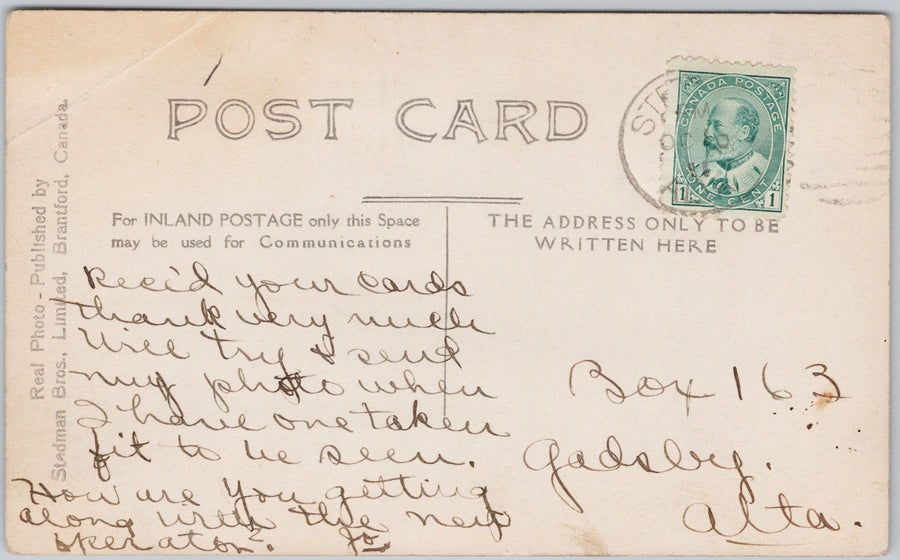 POST CARD
CANADA POSTAGE
1 ONE CENT 1
Real Photo - Published by
Stedman Bros., Limited, Brantford, Canada.
For INLAND POSTAGE only this Space
may be used for Communications
THE ADDRESS ONLY TO BE
WRITTEN HERE
Rec'd your cards
thank very much
Will try & send
my photo when
I have one taken
fit to be seen.
How are you getting
along with the new
operator? Jo
Box 163
Gadsby.
Alta.